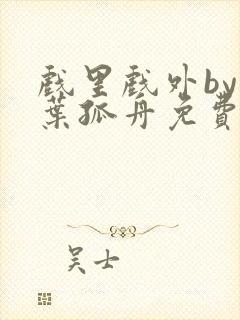 戲里戲外by
葉孤舟免費
吴士